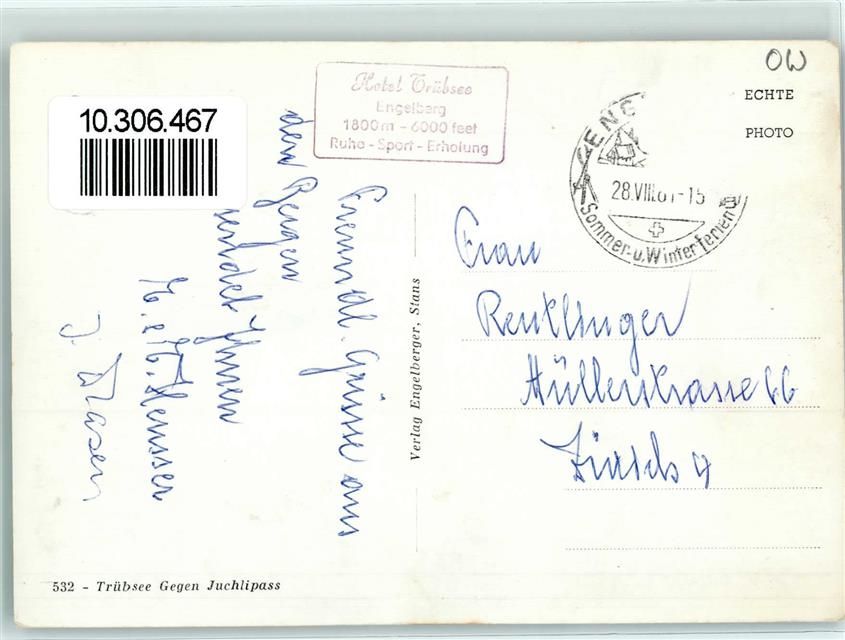 OW
ECHTE
PHOTO
10.306.467
Hotel Trübsee
Engelberg
1800 m - 6000 feet
Ruhe - Sport - Erholung
28.VIII.61-15
Sommer- u. Winterferien
Freundl. Grüsse aus
den Bergen
sendet Ihnen
J. Blaser
Frau
Reutlinger
Müllerstrasse 66
Zürich 4
Verlag Engelberger, Stans
532 - Trübsee Gegen Juchlipass